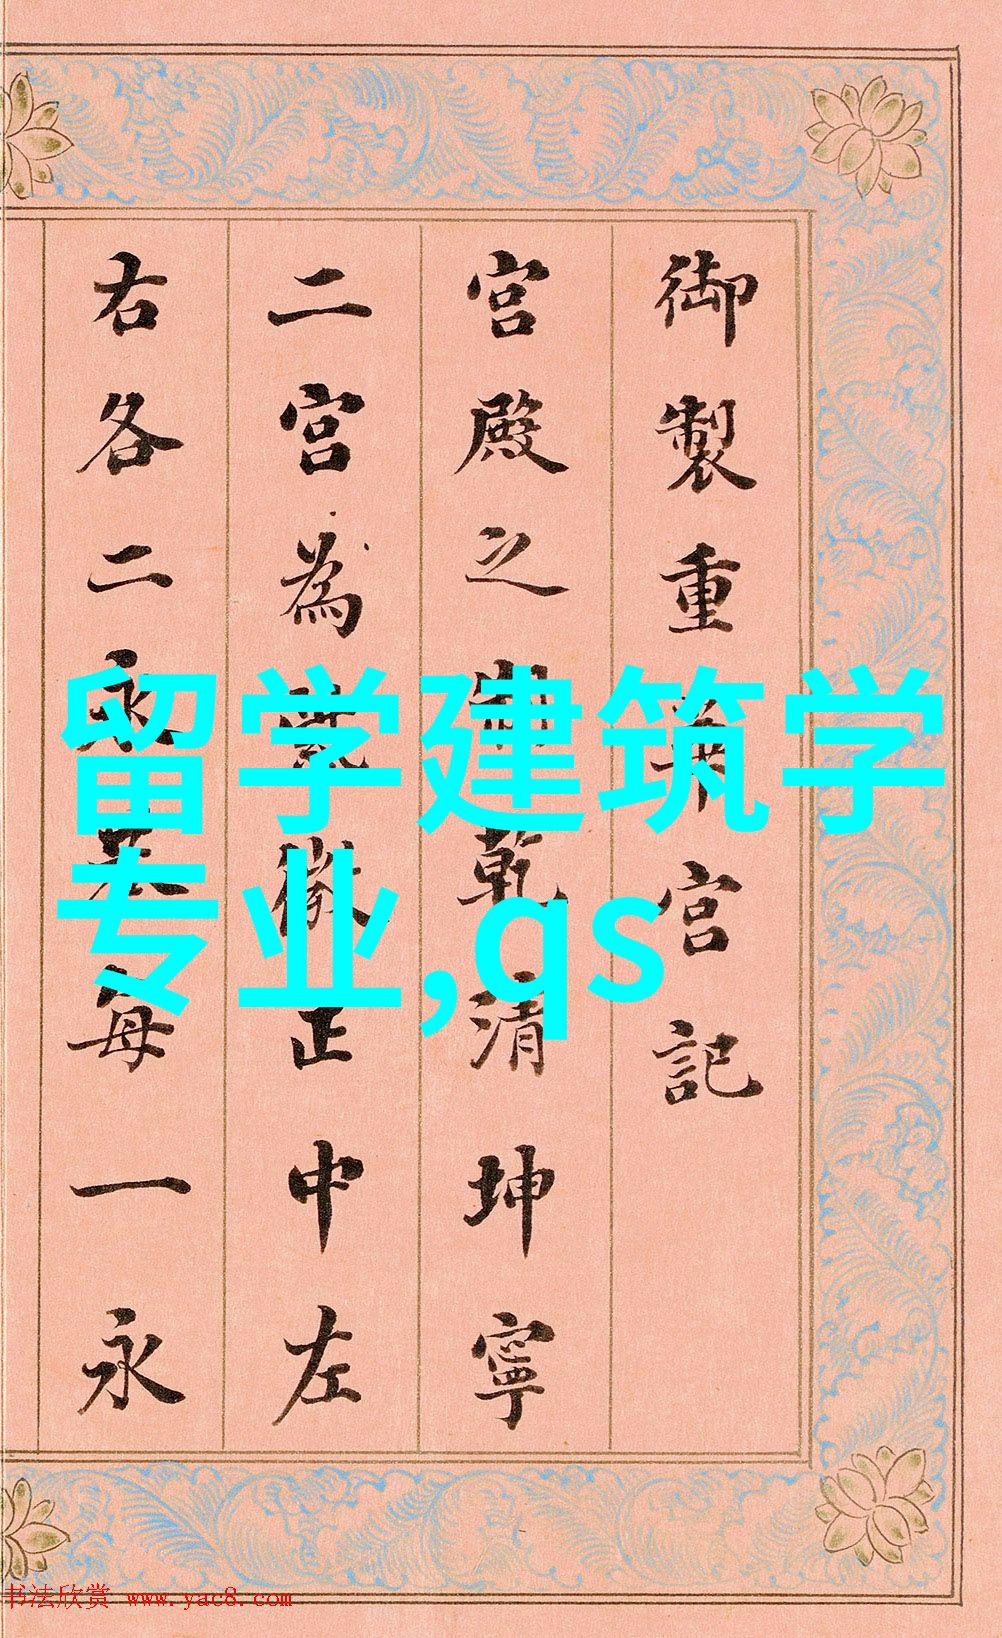 御製重華宮記
宮殿之制乾清坤寧
二宮為紫微正中左
右各二永巷每一永
留学建筑学
专业,qs
书法欣赏 www.yac8.com